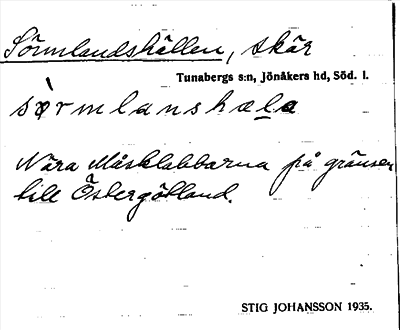 Sörmlandshällen, skär
Tunabergs s:n, Jönåkers hd, Söd. l.
sòrmlanshæla
Nära Måsklabbarna på gränsen
till Östergötland.
STIG JOHANSSON 1935.